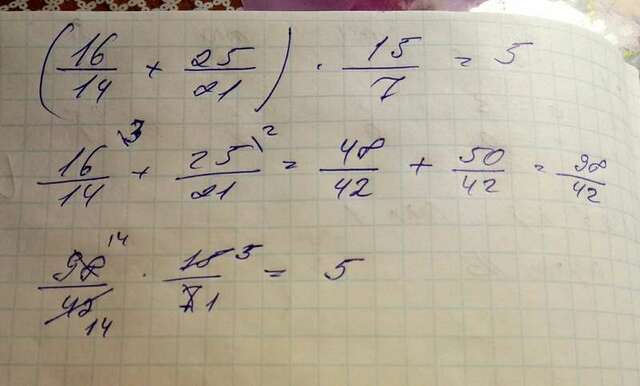 (16/14 + 25/21) · 15/7 = 5
16/14 \3 + 25/21 \2 = 48/42 + 50/42 = 98/42
98/42 14/14 · 15/7 5/1 = 5